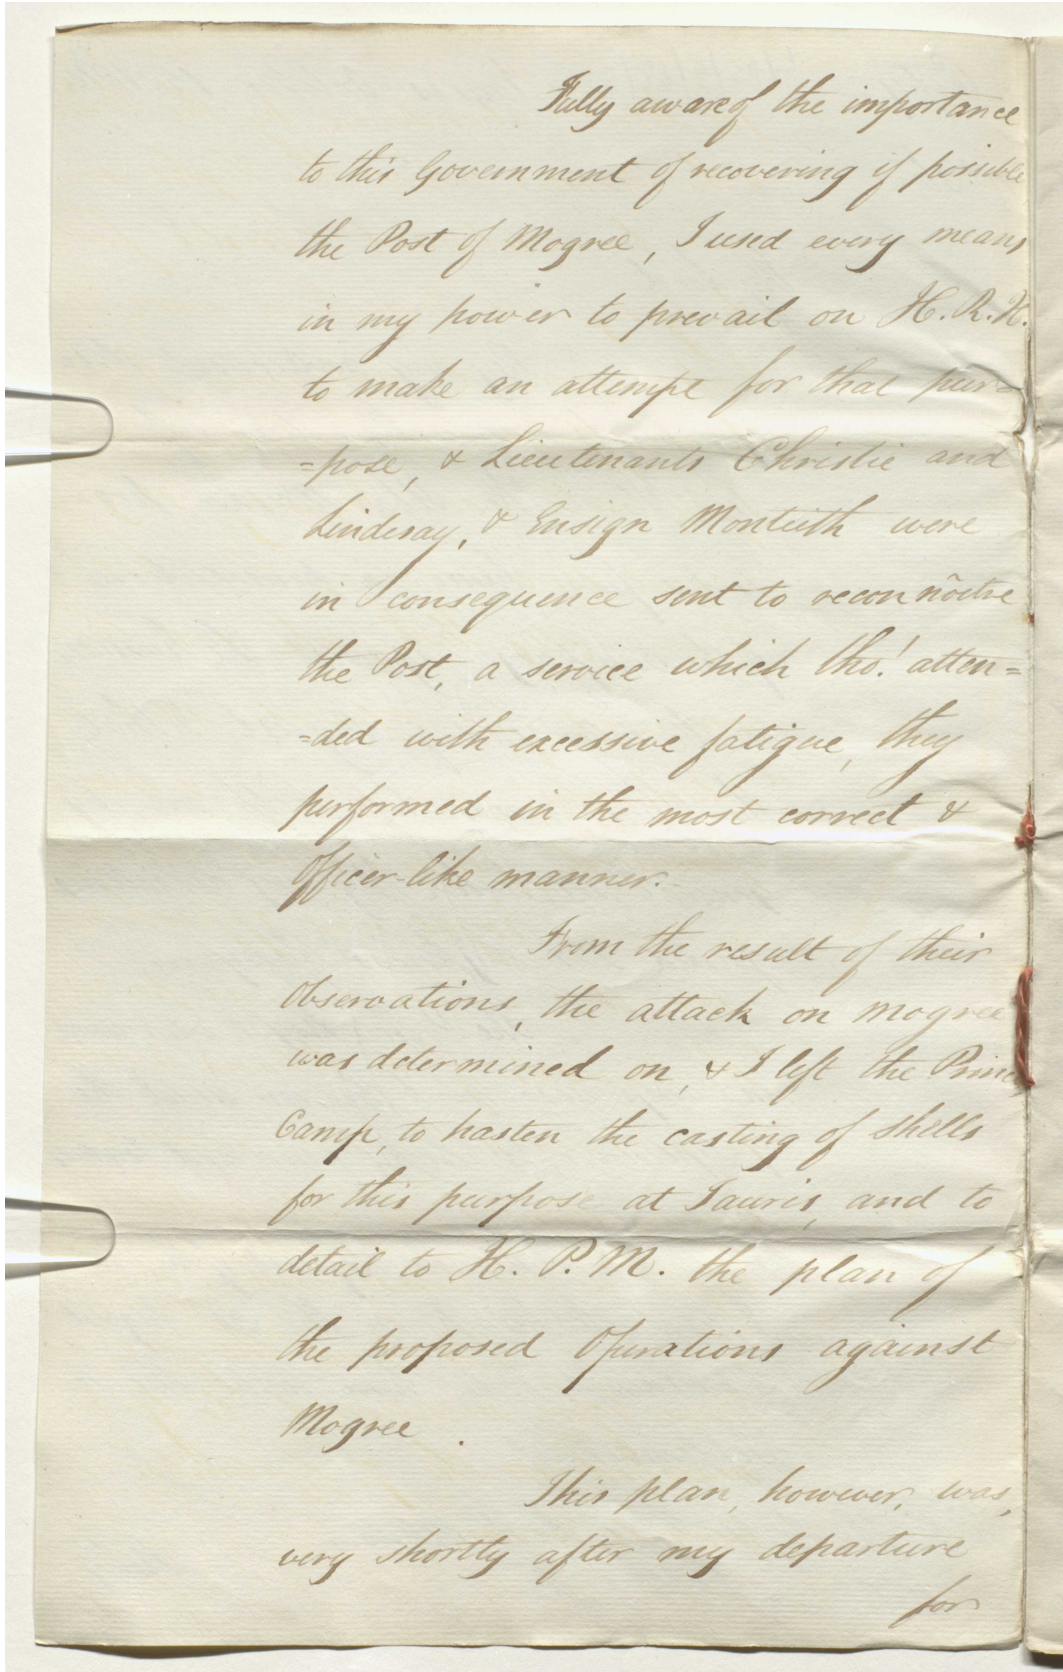 Fully aware of the importance
to this Government of recovering if possible
the Post of Mogree, I used every means
in my power to prevail on H. R. H.
to make an attempt for that pur=
=pose, & Lieutenants Christie and
Lindesay, & Ensign Monteith were
in consequence sent to reconnôitre
the Post, a service which tho! atten=
=ded with excessive fatigue, they
performed in the most correct &
Officer-like manner.
From the result of their
Observations, the attack on Mogree
was determined on, & I left the
Camp, to hasten the casting of Shells
for this purpose at Tauris, and to
detail to H. P. M. the plan of
the proposed Operations against
Mogree.
This plan, however, was,
very shortly after my departure
for